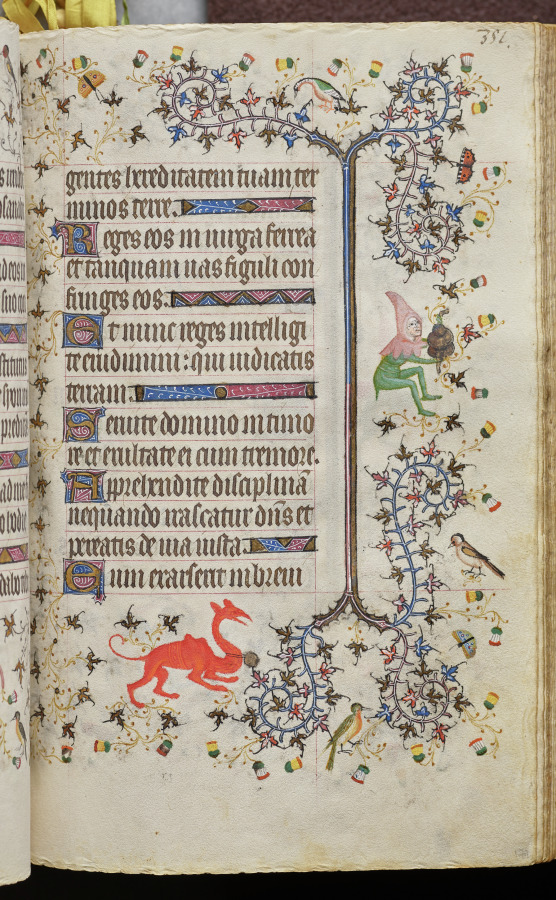 351.
gentes hereditatem tuam ter
minos terre.
Reges eos in uirga ferrea
et tanquam uas figuli con
fringes eos.
Et nunc reges intelligi
te erudimini : qui iudicatis
terram.
Seruite domino in timo
re et exultate ei cum tremore.
Apprehendite disciplinā
nequando irascatur dn̄s et
pereatis de uia iusta.
Cum exarserit in breui